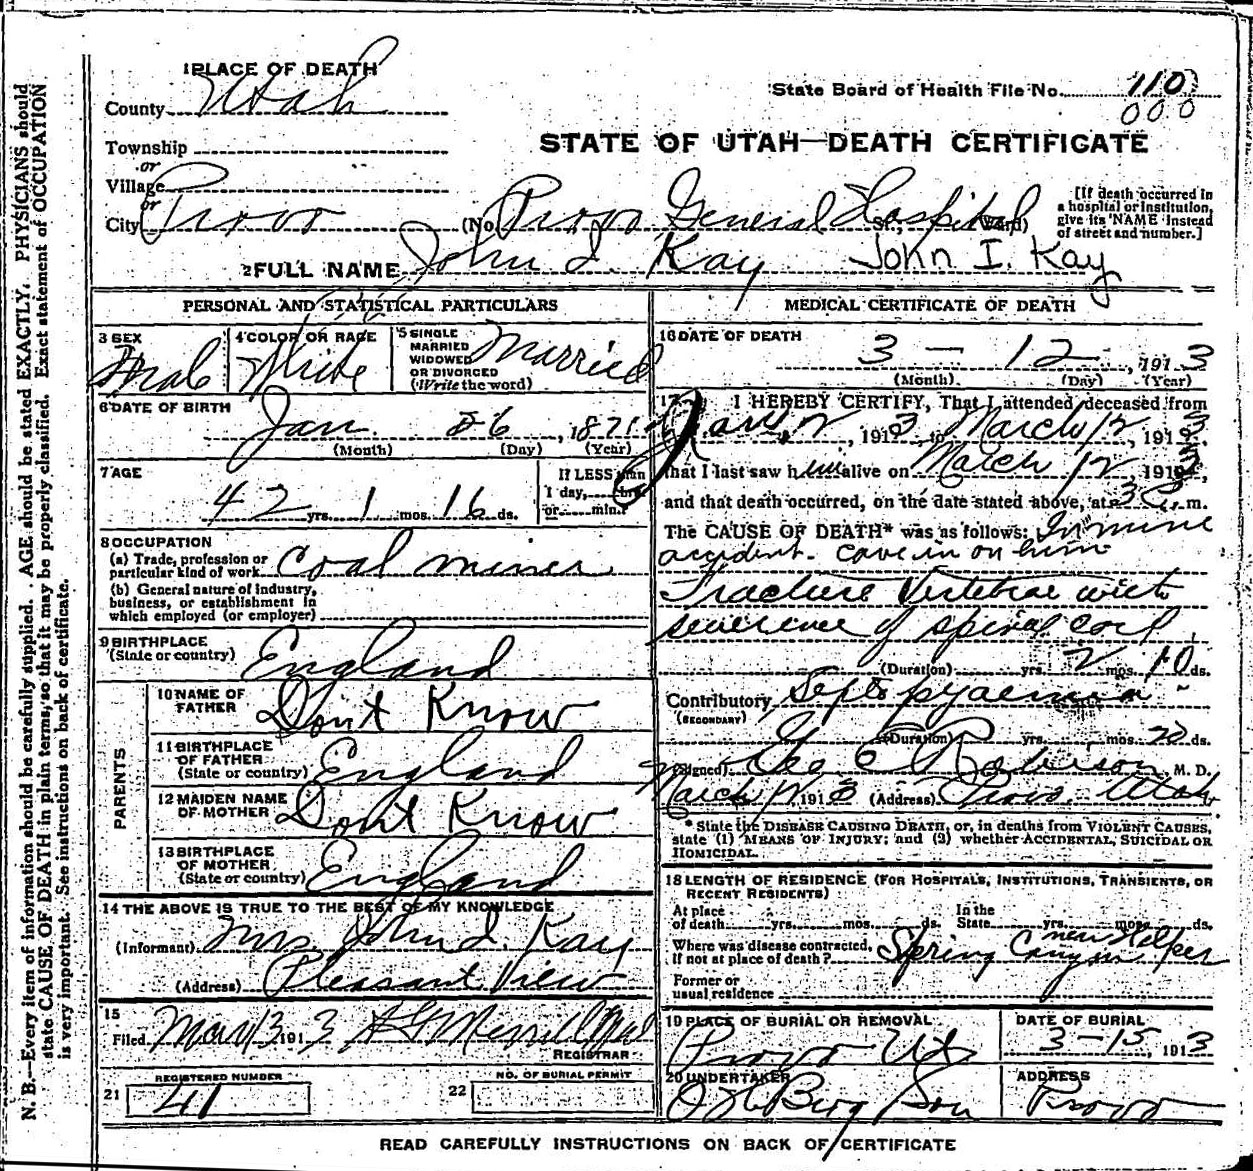 1 PLACE OF DEATH
County Utah
State Board of Health File No. 110
000
Township
or
Village
or
City Provo (No. Provo General Hospital St.; Ward)
STATE OF UTAH—DEATH CERTIFICATE
[If death occurred in
a hospital or institution,
give its NAME instead
of street and number.]
2 FULL NAME John I. Kay John I. Kay
PERSONAL AND STATISTICAL PARTICULARS
3 SEX
Male
4 COLOR OR RACE
White
5 SINGLE
MARRIED
WIDOWED
OR DIVORCED
(Write the word)
Married
6 DATE OF BIRTH
Jan. 26, 1871
(Month) (Day) (Year)
7 AGE
42 yrs. 1 mos. 16 ds.
If LESS than
1 day, hrs.
or min.?
8 OCCUPATION
(a) Trade, profession or
particular kind of work Coal miner
(b) General nature of industry,
business, or establishment in
which employed (or employer)
9 BIRTHPLACE
(State or country) England
PARENTS
10 NAME OF
FATHER Don't Know
11 BIRTHPLACE
OF FATHER
(State or country) England
12 MAIDEN NAME
OF MOTHER Dont Know
13 BIRTHPLACE
OF MOTHER
(State or country) England
14 THE ABOVE IS TRUE TO THE BEST OF MY KNOWLEDGE
(Informant) Mrs. John I. Kay
(Address) Pleasant View
15
Filed Mar 13 1913
REGISTRAR
REGISTERED NUMBER
21 41
NO. OF BURIAL PERMIT
22
MEDICAL CERTIFICATE OF DEATH
16 DATE OF DEATH
3 — 12, 1913
(Month) (Day) (Year)
17 I HEREBY CERTIFY, That I attended deceased from
Jany 2, 1913, to March 12, 1913,
that I last saw him alive on March 12, 1913,
and that death occurred, on the date stated above, at 3 m.
The CAUSE OF DEATH* was as follows: In mine
accident. cave in on him
Fracture Vertebrae with
severence of spinal cord.
(Duration) yrs. 2 mos. 10 ds.
Contributory pyaemia
(SECONDARY)
(Duration) yrs. mos. 20 ds.
(Signed) Geo E Robinson M. D.
March 12 1913 (Address) Provo Utah
* State the DISEASE CAUSING DEATH, or, in deaths from VIOLENT CAUSES,
state (1) MEANS OF INJURY; and (2) whether ACCIDENTAL, SUICIDAL OR
HOMICIDAL.
18 LENGTH OF RESIDENCE (FOR HOSPITALS, INSTITUTIONS, TRANSIENTS, OR
RECENT RESIDENTS)
At place
of death yrs. mos. ds.
In the
State yrs. mos. ds.
Where was disease contracted,
if not at place of death? Spring Canyon near Helper
Former or
usual residence
19 PLACE OF BURIAL OR REMOVAL
Provo Ut
DATE OF BURIAL
3-15, 1913
20 UNDERTAKER
Berg Son
ADDRESS
Provo
READ CAREFULLY INSTRUCTIONS ON BACK OF CERTIFICATE
N. B.—Every item of information should be carefully supplied. AGE should be stated EXACTLY. PHYSICIANS should
state CAUSE OF DEATH in plain terms, so that it may be properly classified. Exact statement of OCCUPATION
is very important. See instructions on back of certificate.